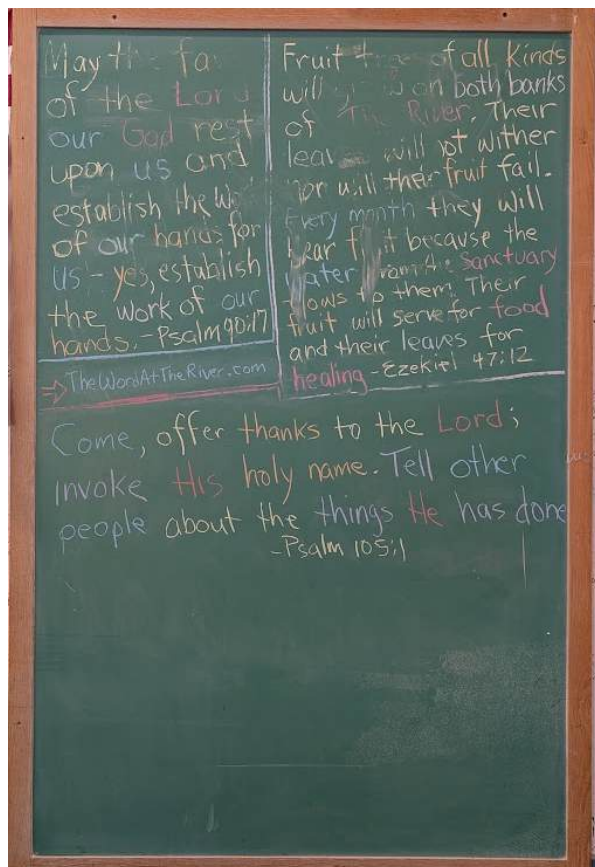 May the fa
of the Lord
our God rest
upon us and
establish the Wo
of our hands for
us - yes, establish
the work of our
hands. -Psalm 90:17
→ TheWordAtTheRiver.com
Fruit trees of all kinds
will on both banks
of The River. Their
leaves will not wither
nor will their fruit fail.
Every month they will
bear fruit because the
water from the Sanctuary
flows to them. Their
fruit will serve for food
and their leaves for
healing -Ezekiel 47:12
Come, offer thanks to the Lord;
invoke His holy name. Tell other
people about the things He has done
-Psalm 105:1